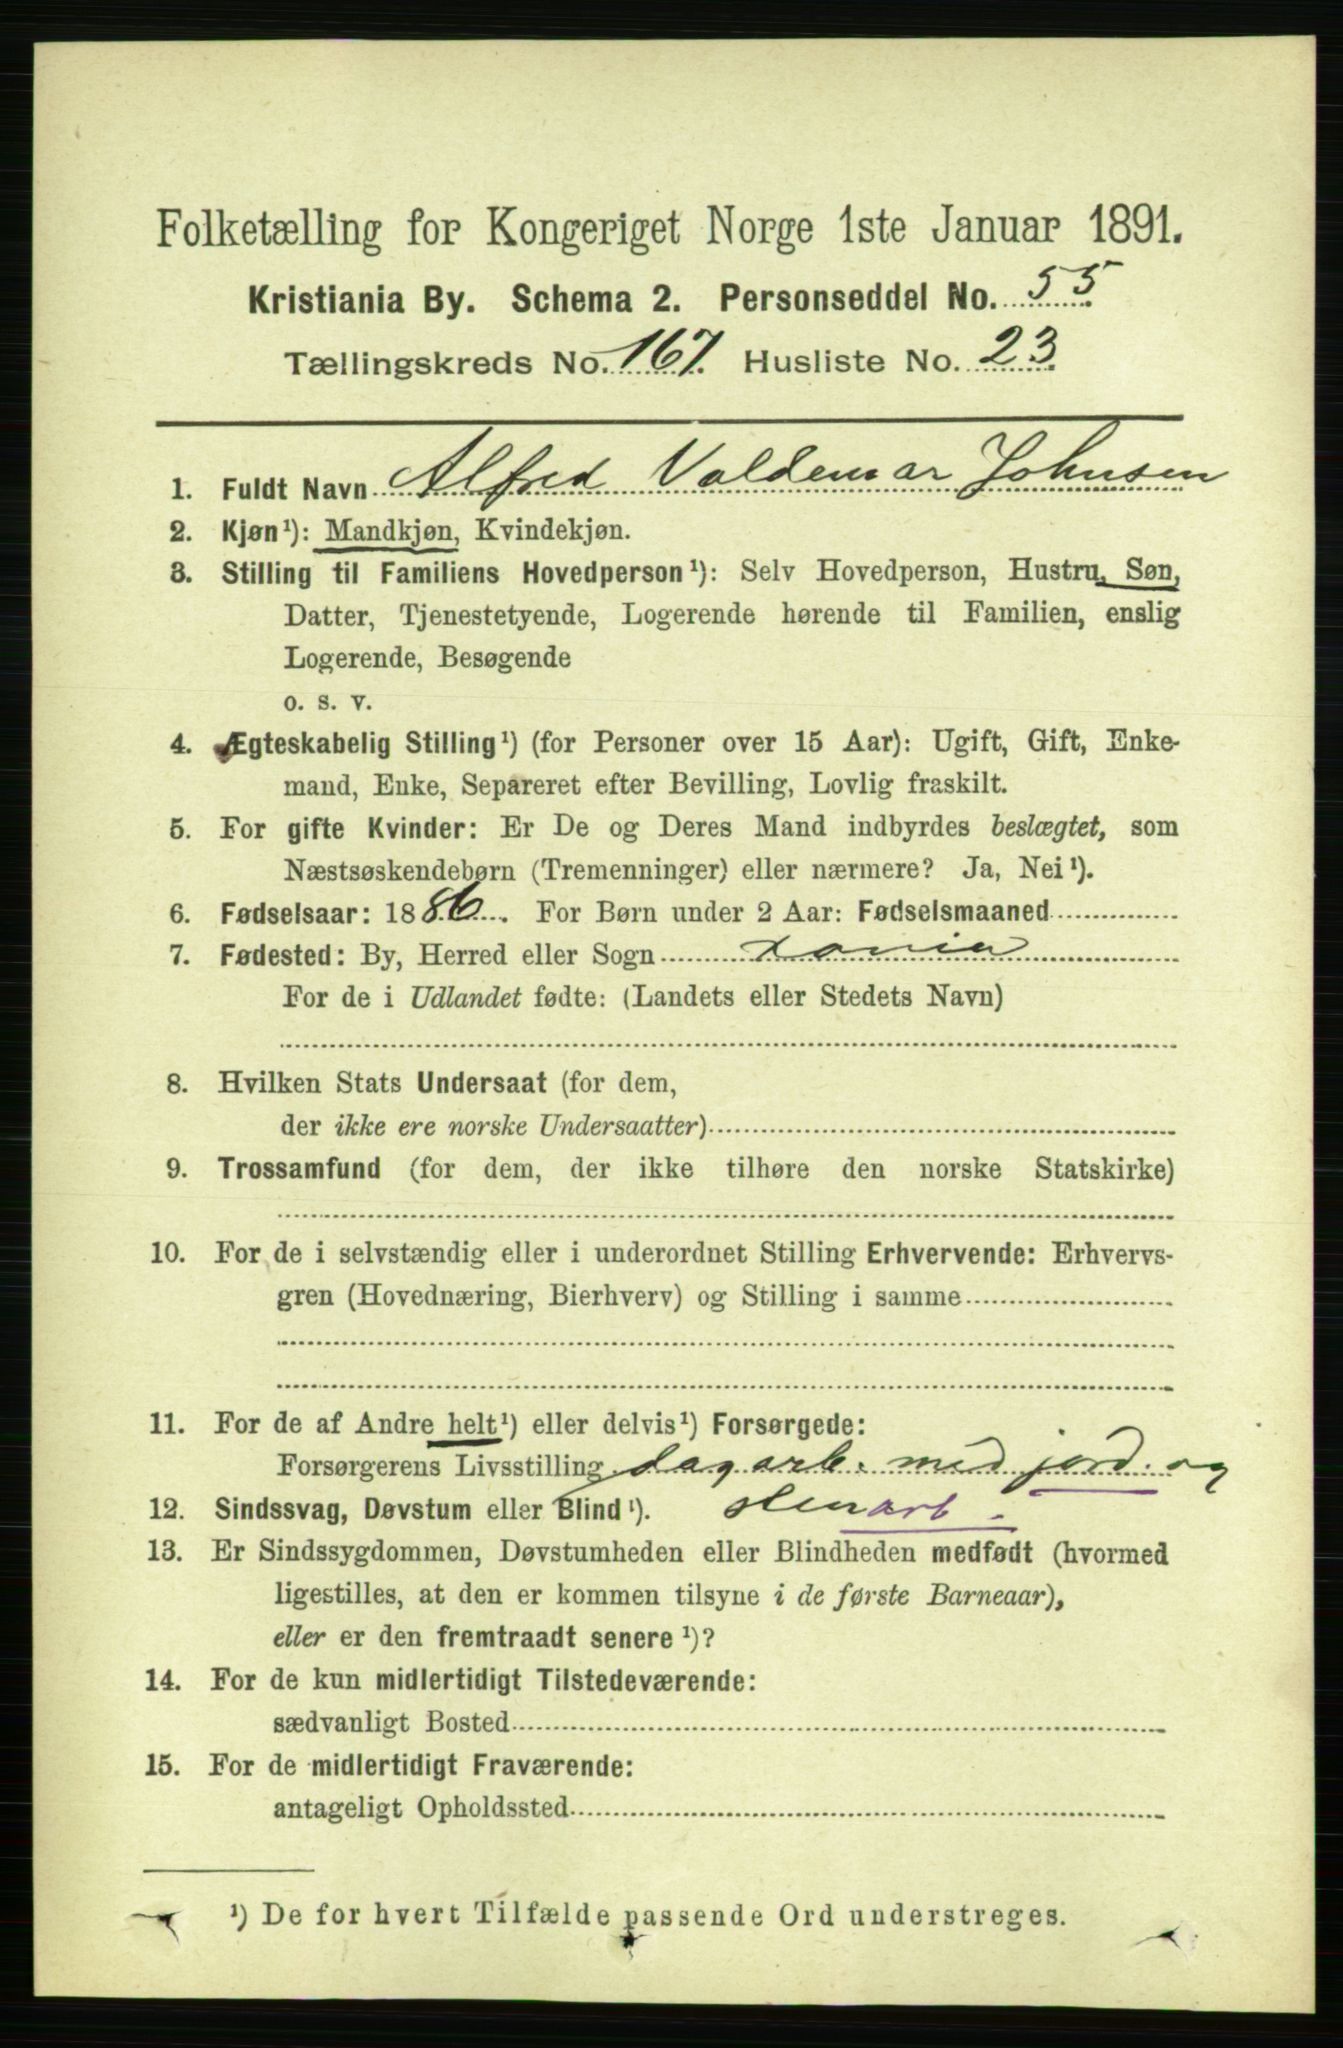 Folketælling for Kongeriget Norge 1ste Januar 1891.
Kristiania By. Schema 2. Personseddel No. 55
Tællingskreds No. 167. Husliste No. 23
1. Fuldt Navn Alfred Valdemar Johnsen
2. Kjøn¹): Mandkjøn, Kvindekjøn.
3. Stilling til Familiens Hovedperson¹): Selv Hovedperson, Hustru, Søn,
Datter, Tjenestetyende, Logerende hørende til Familien, enslig
Logerende, Besøgende
o. s. v.
4. Ægteskabelig Stilling¹) (for Personer over 15 Aar): Ugift, Gift, Enke-
mand, Enke, Separeret efter Bevilling, Lovlig fraskilt.
5. For gifte Kvinder: Er De og Deres Mand indbyrdes beslægtet, som
Næstsøskendebørn (Tremenninger) eller nærmere? Ja, Nei¹).
6. Fødselsaar: 1886. For Børn under 2 Aar: Fødselsmaaned
7. Fødested: By, Herred eller Sogn Xania
For de i Udlandet fødte: (Landets eller Stedets Navn)
8. Hvilken Stats Undersaat (for dem,
der ikke ere norske Undersaatter)
9. Trossamfund (for dem, der ikke tilhøre den norske Statskirke)
10. For de i selvstændig eller i underordnet Stilling Erhvervende: Erhvervs-
gren (Hovednæring, Bierhverv) og Stilling i samme
11. For de af Andre helt¹) eller delvis¹) Forsørgede:
Forsørgerens Livsstilling dagarb. med jord. og
12. Sindssvag, Døvstum eller Blind¹). stenarb.
13. Er Sindssygdommen, Døvstumheden eller Blindheden medfødt (hvormed
ligestilles, at den er kommen tilsyne i de første Barneaar),
eller er den fremtraadt senere¹)?
14. For de kun midlertidigt Tilstedeværende:
sædvanligt Bosted
15. For de midlertidigt Fraværende:
antageligt Opholdssted
¹) De for hvert Tilfælde passende Ord understreges.